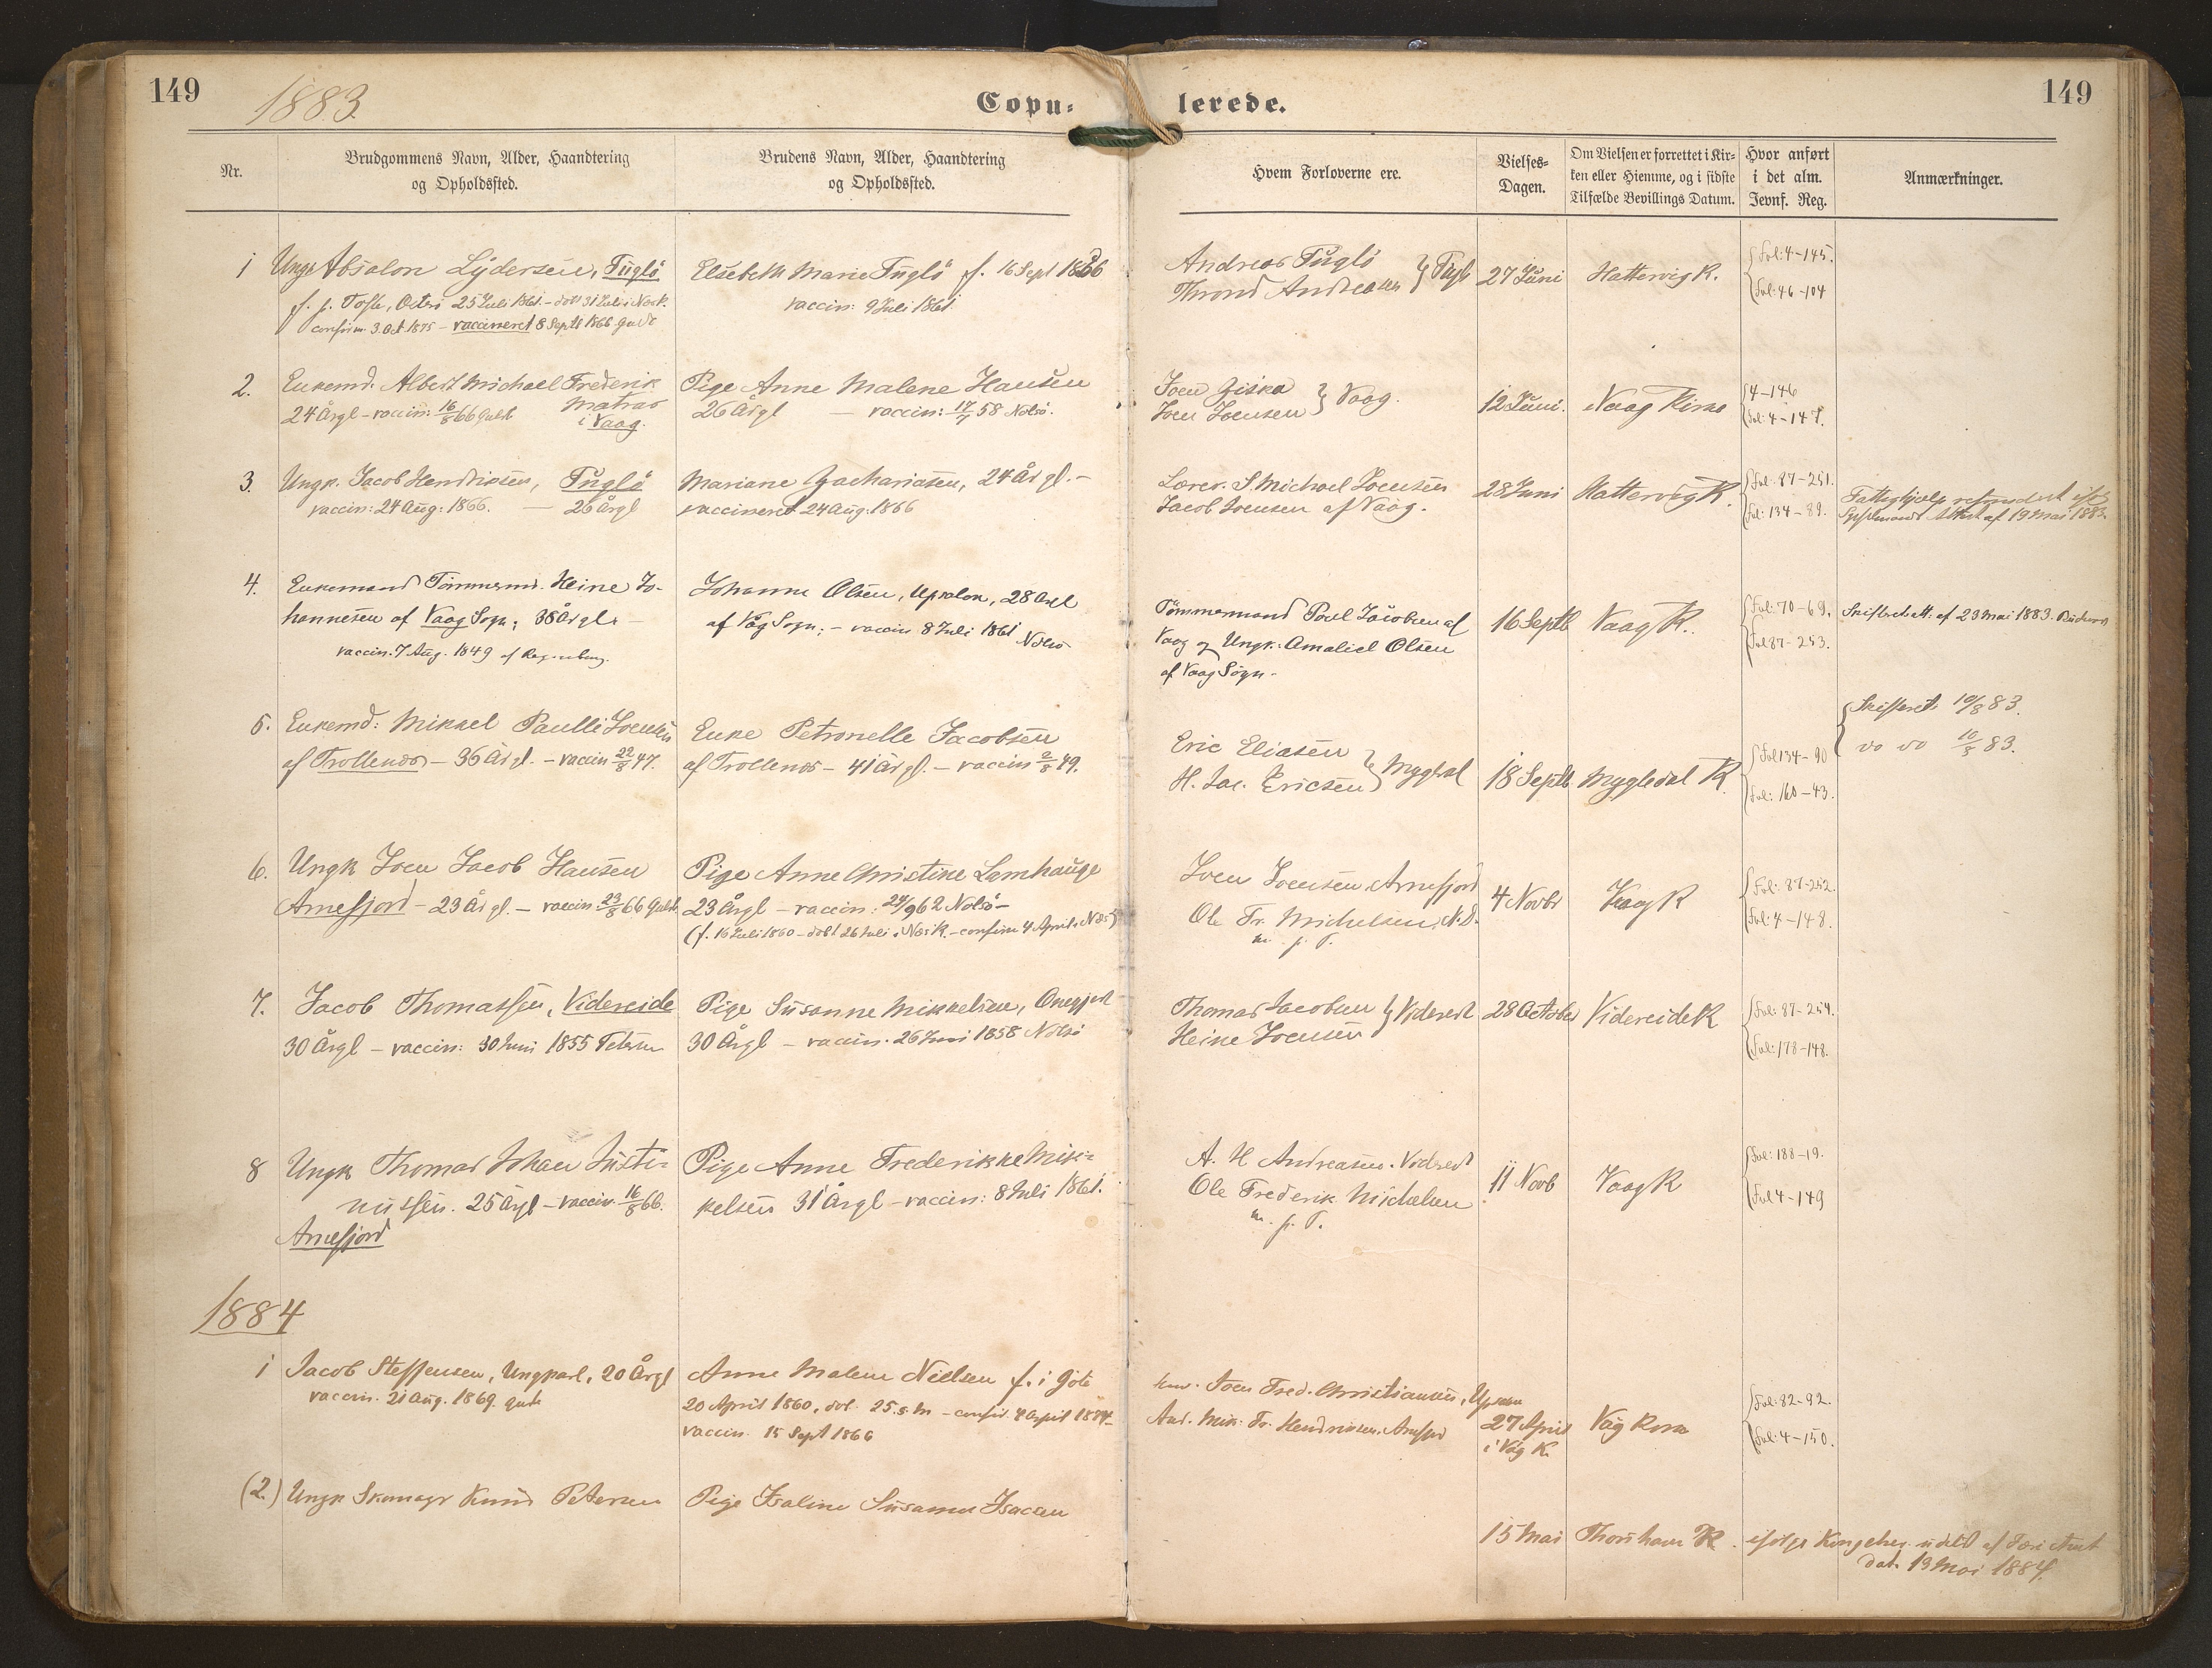 149
1883.
Copu-
lerede.
149
Nr.
Brudgommens Navn, Alder, Haandtering
og Opholdssted.
Brudens Navn, Alder, Haandtering
og Opholdssted.
Hvem Forloverne ere.
Vielses-
Dagen.
Om Vielsen er forrettet i Kir-
ken eller Hiemme, og i sidste
Tilfælde Bevillings Datum.
Hvor anført
i det alm.
Jevnf. Reg.
Anmærkninger.
1
Ungk Absalon Lydersen, Fuglö
25 Juli 1861 - döbt 31 Juli i
confirm. 3. Oct 1875 - vaccineret 8 Septb 1866
Elsebeth Marie Fuglö f. 16 Sept
vaccin: 9 Juli 1861
Andreas Fuglö
Thrond Andreasen } Fugl
27 Juni
Hattervig K.
Fol: 4-145.
Fol: 46-104
2.
Enkemd. Albert Michael Frederik
24 Årgl - vaccin: 16/8 66 Matras
i Vaag.
Pige Anne Malene Hansen
26 Årgl - vaccin: 17/7 58 Nolsö.
Joen Ziska
Joen Joensen } Vaag.
12 Juni.
Vaag Kirke
4-146
Fol: 4-147.
3.
Ungk. Jacob Hendriksen, Fuglö
vaccin: 24 Aug: 1866. - 26 Årgl
Mariane Zachariasen, 24 År gl. -
vaccineret 24 Aug: 1866
Lærer. S. Michael Joensen
Jacob Joensen af Vaag.
28 Juni
Hattervig K.
Fol: 87-251.
Fol: 134-89.
Fattighjælp refunderet
af 19 Mai 1883.
4.
Enkemand Tömmermd. Heine Jo-
hannesen af Vaag Sogn; 38 År gl. -
vaccin. 7 Aug. 1849 af
Johanne Olsen, 28 Årgl
af Våg Sogn; - vaccin 8 Juli 1861
Nolsö
Tömmermand Poul Jacobsen af
Vaag og Ungk. Amaliel Olsen
af Vaag Sogn.
16 Septb
Vaag K.
Fol: 70-69.
Fol 87-253.
Skifteretsatt. af 23 Mai 1883.
5.
Enkemd: Mikkel Paulli Joensen
af Trollenæs - 36 År gl. - vaccin 22/8 47.
Enke Petronelle Jacobsen
af Trollenæs - 41 År gl. - vaccin 2/8 49.
Eric Eliasen
H. Jac. Ericsen } Mygledal
18 Septb.
Mygledal K.
Fol 134-90
Fol: 160-43.
Skifteret. 10/8 83.
do do 10/8 83.
6.
Ungk Joen Jacob Hansen
Arnefjord - 23 År gl. - vaccin 23/8 66
Pige Anne Christine Lamhauge
23 Årgl - vaccin: 24/9 62 Nolsö -
(f. 16 Juli 1860 - döbt 26 Juli i Næs K. - confirm 4 April
Joen Joensen, Arnefjord
Ole Fr. Michelsen, N.D.
m. p. P.
4 Novbr
Vaag K
Fol: 87-252.
Fol: 4-148.
7.
Jacob Thomassen, Videreide
30 Årgl - vaccin: 30 Juni 1855 Petersen
Pige Susanne Mikkelsen,
30 Årgl - vaccin. 26 Juni 1858 Nolsö
Thomas Jacobsen
Heine Joensen } Videreid
28 October
Videreide K
Fol: 87-254.
Fol: 178-148.
8
Ungk Thomas Johan Justi-
nussen. 25 Årgl - vaccin. 16/8 66.
Arnefjord
Pige Anne Frederikke Mik-
kelsen 31 Årgl - vaccin: 8 Juli 1861.
A. H Andreasen.
Ole Frederik Michelsen
m. p. P.
11 Novb
Vaag K
Fol: 188-19.
Fol 4-149
1884
1
Jacob Steffensen, Ungkarl, 20 Årgl
vaccin. 21 Aug. 1869.
Anne Malene Nielsen f. i Göte
20 April 1860, döb. 25. s. M - confir. 4 April
vaccin. 15 Sept 1866
Joen Fred. Christiansen,
And. Mik: Fr. Hendriksen. Arnefjord
27 April
i Våg K.
Våg Kirke
Fol: 82-92.
Fol: 4-150.
(2.)
Ungk Skomagr Knud Petersen
Pige Isaline Susanne Isacsen
15 Mai
Thorshavn K.
ifölge Kongebrev udst af Færö Amt
dat. 13 Mai 1884.